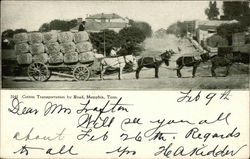 5241 Cotton Transportation by Road, Memphis, Tenn.
Feb 9th
Dear Mrs Grafton
Will see you all
about Feb 26th. Regards
to all yrs HA Kidder